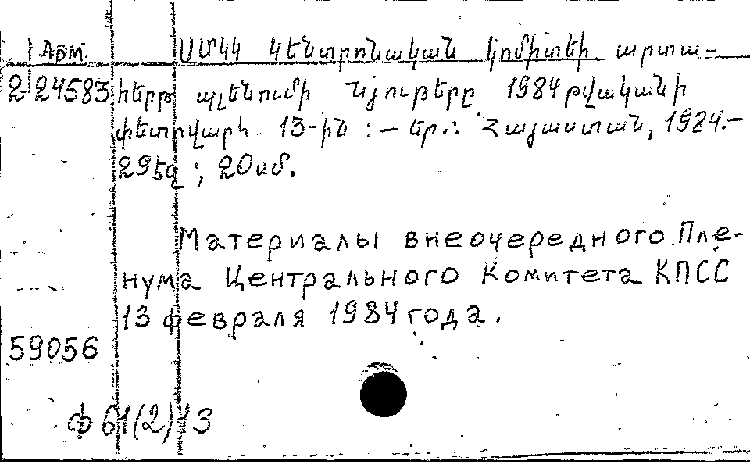 Абм. ՍՄԿԿ Կենտրոնական կոմիտեի արտա-
2-24583 հերթ պլենումի նյութերը 1984 թվականի
փետրվարի 13-ին : — Եր.: Հայաստան, 1984.—
29 էջ ; 20 սմ.
Материалы внеочередного Пле-
нума Центрального Комитета КПСС
13 февраля 1984 года.
59056
ф 61(2)13